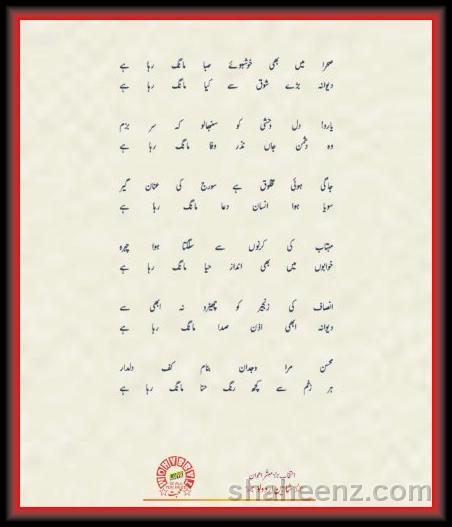 صحرا میں بھی خوشبوئے صبا مانگ رہا ہے
دیوانہ بڑے شوق سے کیا مانگ رہا ہے
یارو! دل وحشی کو سنبھالو کہ سر بزم
وہ دشمن جاں نذر وفا مانگ رہا ہے
جاگی ہوئی مخلوق ہے سورج کی عناں گیر
سویا ہوا انسان دعا مانگ رہا ہے
مہتاب کی کرنوں سے سلگتا ہوا چہرہ
خوابوں میں بھی انداز حیا مانگ رہا ہے
انصاف کی زنجیر کو چھیڑو نہ ابھی سے
دیوانہ ابھی اذن صدا مانگ رہا ہے
محسن مرا وجدان بنام کف دلدار
ہر زخم سے کچھ رنگ حنا مانگ رہا ہے
shaheenz.com